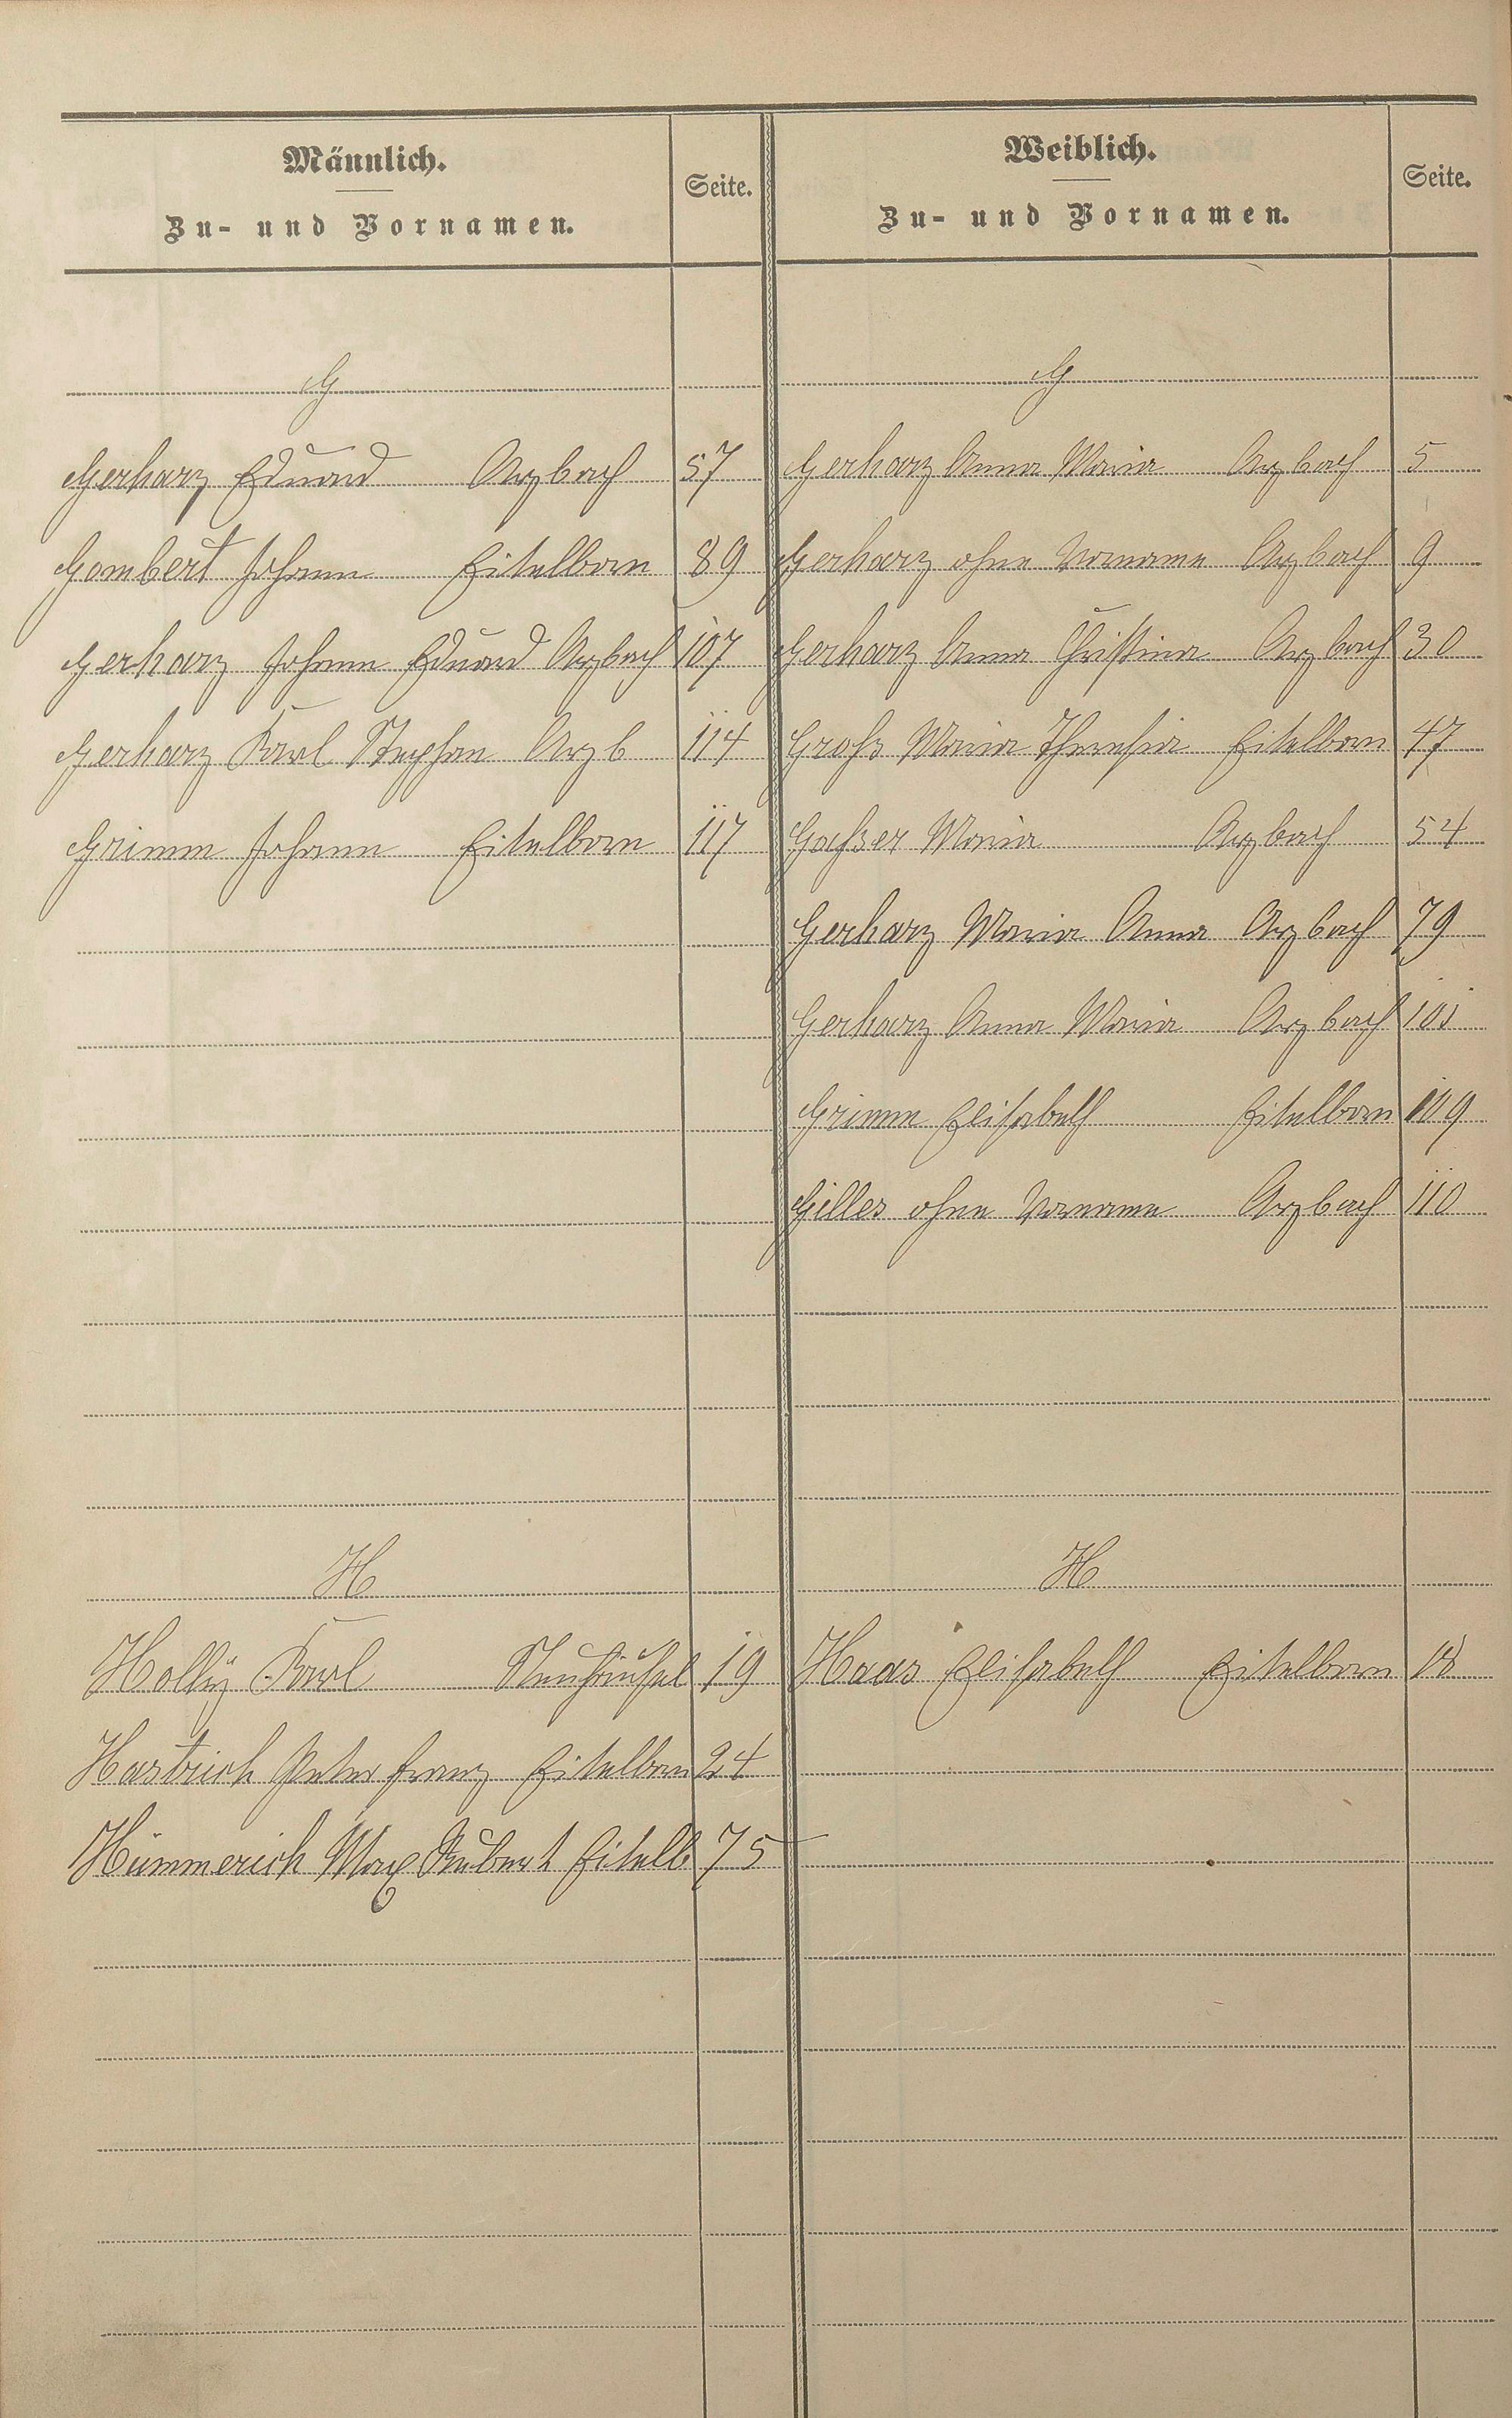 Männlich.
Zu- und Vornamen.
Seite.
G
Gerharz Eduard Arzbach 57
Gombert Johann Eitelborn 89
Gerharz Johann Eduard Arzbach 107
Gerharz Karl Stephan Arzb 114
Grimm Johann Eitelborn 117
H
Holly Karl Neuhäusel 19
Hastrich Peter Franz Eitelborn 24
Hümmerich Max Rubert Eitelb 75
Weiblich.
Zu- und Vornamen.
Seite.
G
Gerharz Anna Maria Arzbach 5
Gerharz ohne Vorname Arzbach 9
Gerharz Anna Christina Arzbach 30
Groß Maria Theresia Eitelborn 47
Maria Arzbach 54
Gerharz Maria Anna Arzbach 79
Gerharz Anna Maria Arzbach 101
Grimm Elisabeth Eitelborn 109
Gilles ohne Vorname Arzbach 110
H
Haas Elisabeth Eitelborn